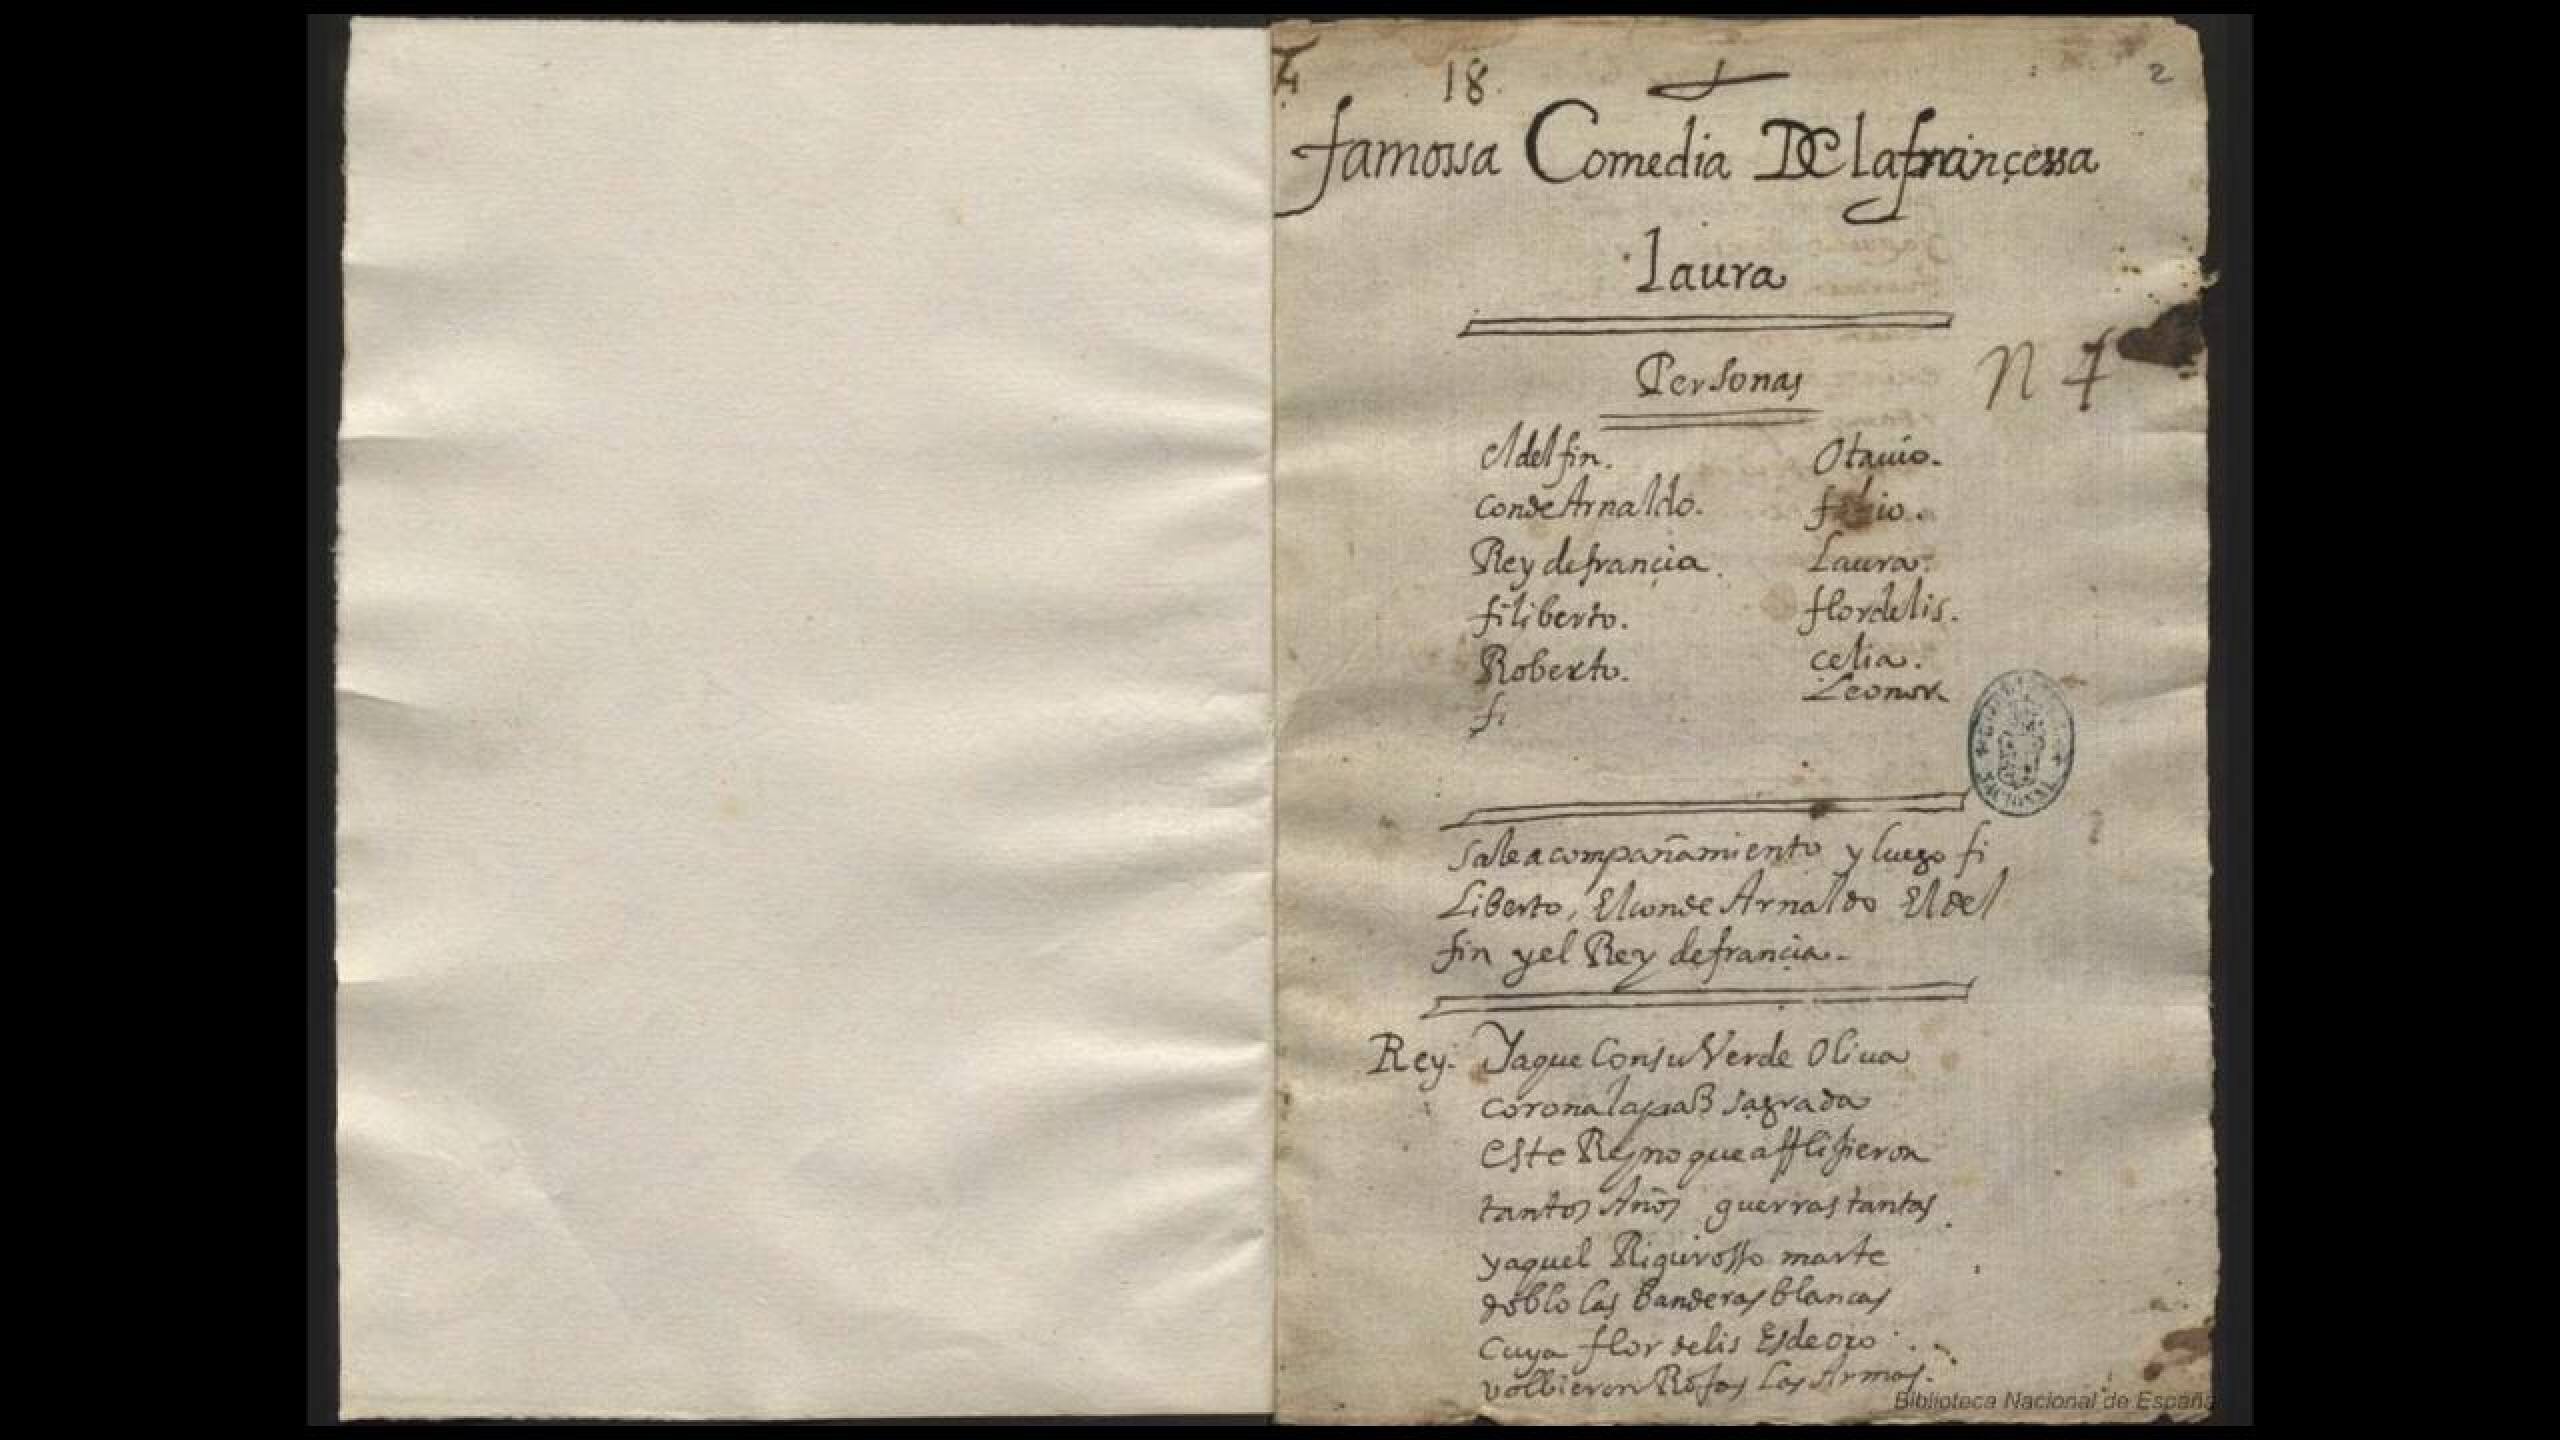 18.
2
famossa Comedia De la françessa
Laura
Personas
N 4
el delfin.
Otauio.
conde Arnaldo.
Rey de françia.
Laura.
filiberto.
flordelis.
Roberto.
celia.
Leonor
fi
Sale acompañamiento y luego fi
liberto, El conde Arnaldo El del
fin y el Rey de françia.
Rey. Ya que con su Verde Oliua
corona la paz sagrada
este Reyno que afflijieron
tantos Años guerras tantas
y aquel Rigurosso marte
doblo las banderas blancas
cuya flor de lis Es de oro
volbieron Rojas las Armas.
NACIONAL
Biblioteca Nacional de España